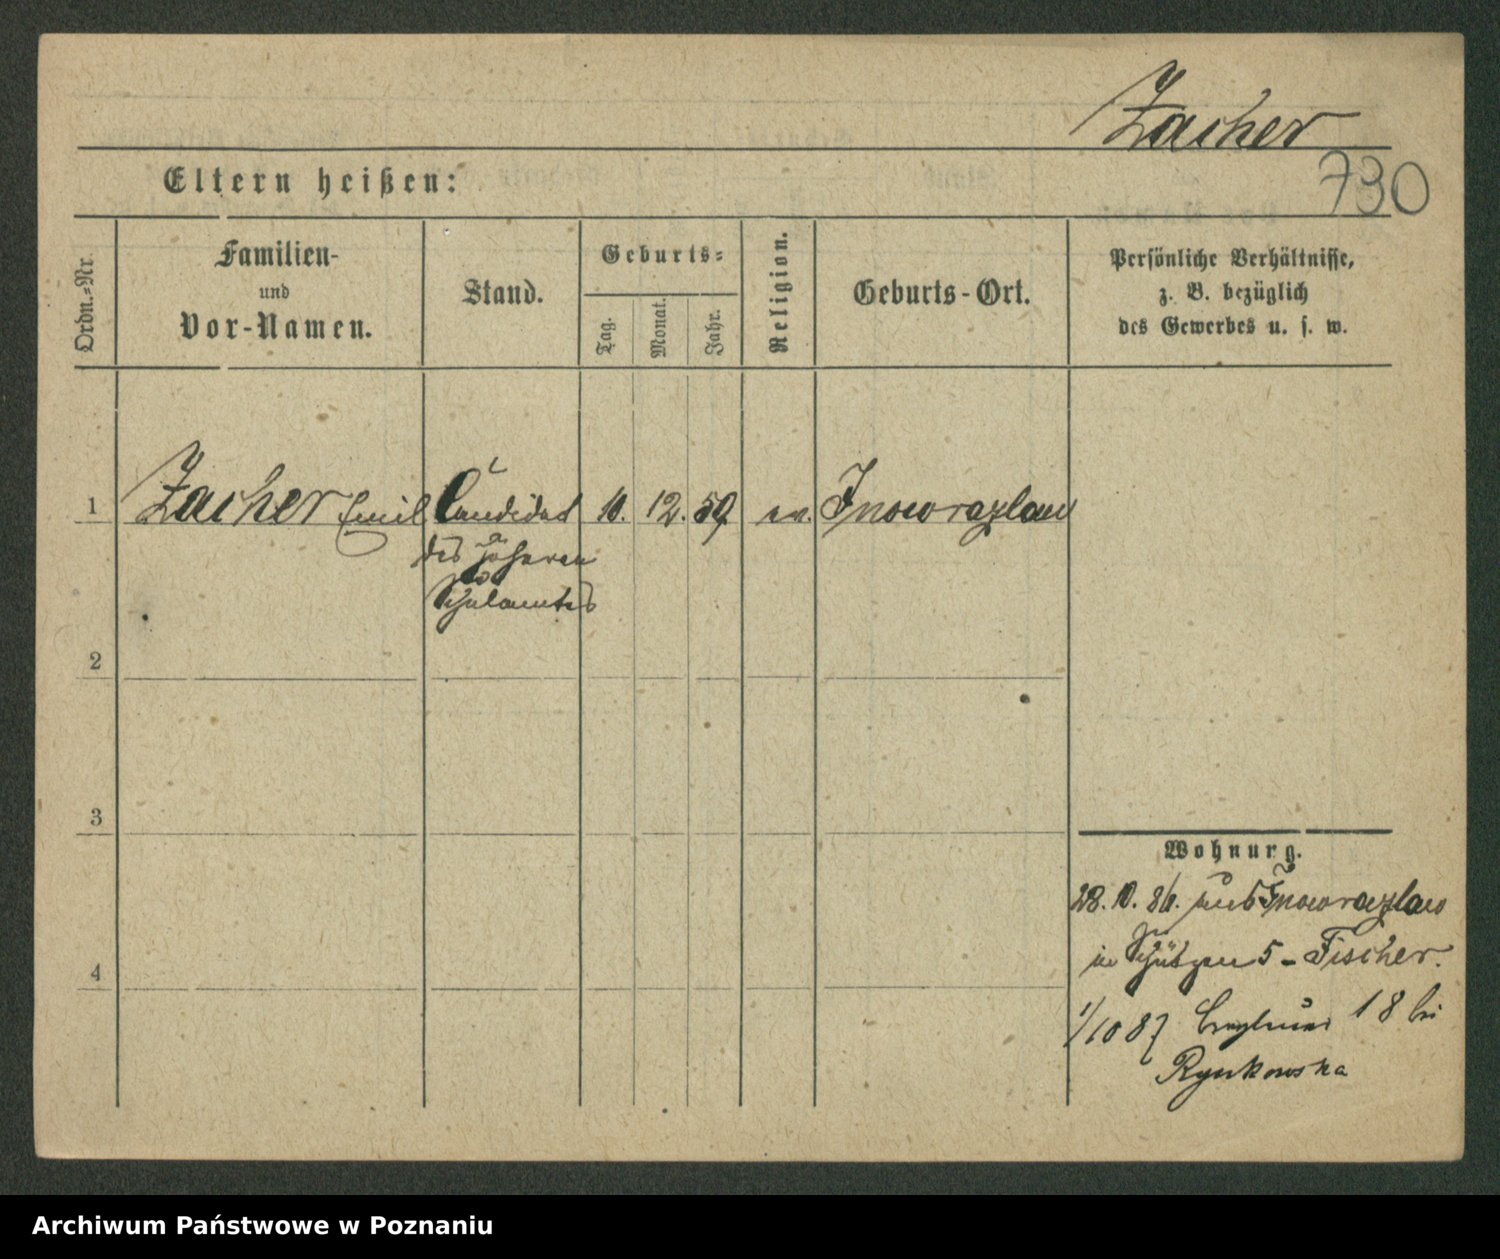 Zacher
730
Eltern heißen:
Ordn.-Nr.
Familien-
und
Vor-Namen.
Stand.
Geburts-
Tag.
Monat.
Jahr.
Religion.
Geburts-Ort.
Persönliche Verhältnisse,
z. B. bezüglich
des Gewerbes u. s. w.
1 Zacher Emil Candidat 10. 12. 59 ev. Inowrazlaw
des höheren
Schulamtes
2
3
4
Wohnung.
28. 10. 86. aus Inowrazlaw
in Schützen 5 - Fischer.
1/10 87 18 bei
Rynkowska
Archiwum Państwowe w Poznaniu